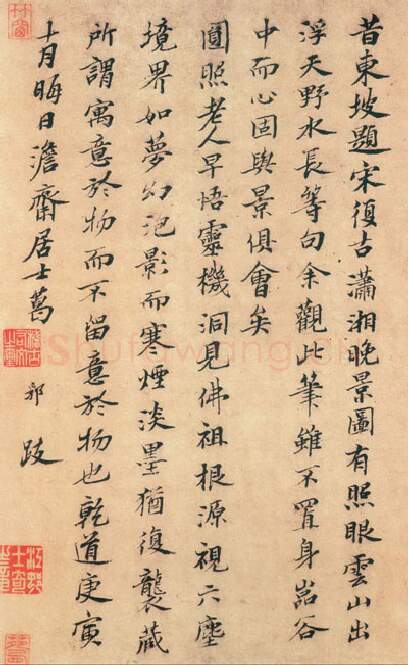 昔東坡題宋復古瀟湘晚景圖有照眼雲山出
浮天野水長等句余觀此筆雖不置身嵓谷
中而心固與景俱會矣
圓照老人早悟靈機洞見佛祖根源視六塵
境界如夢幻泡影而寒煙淡墨猶復襲藏
所謂寓意於物而不留意於物也乾道庚寅
十月晦日澹齋居士葛
郯 跋